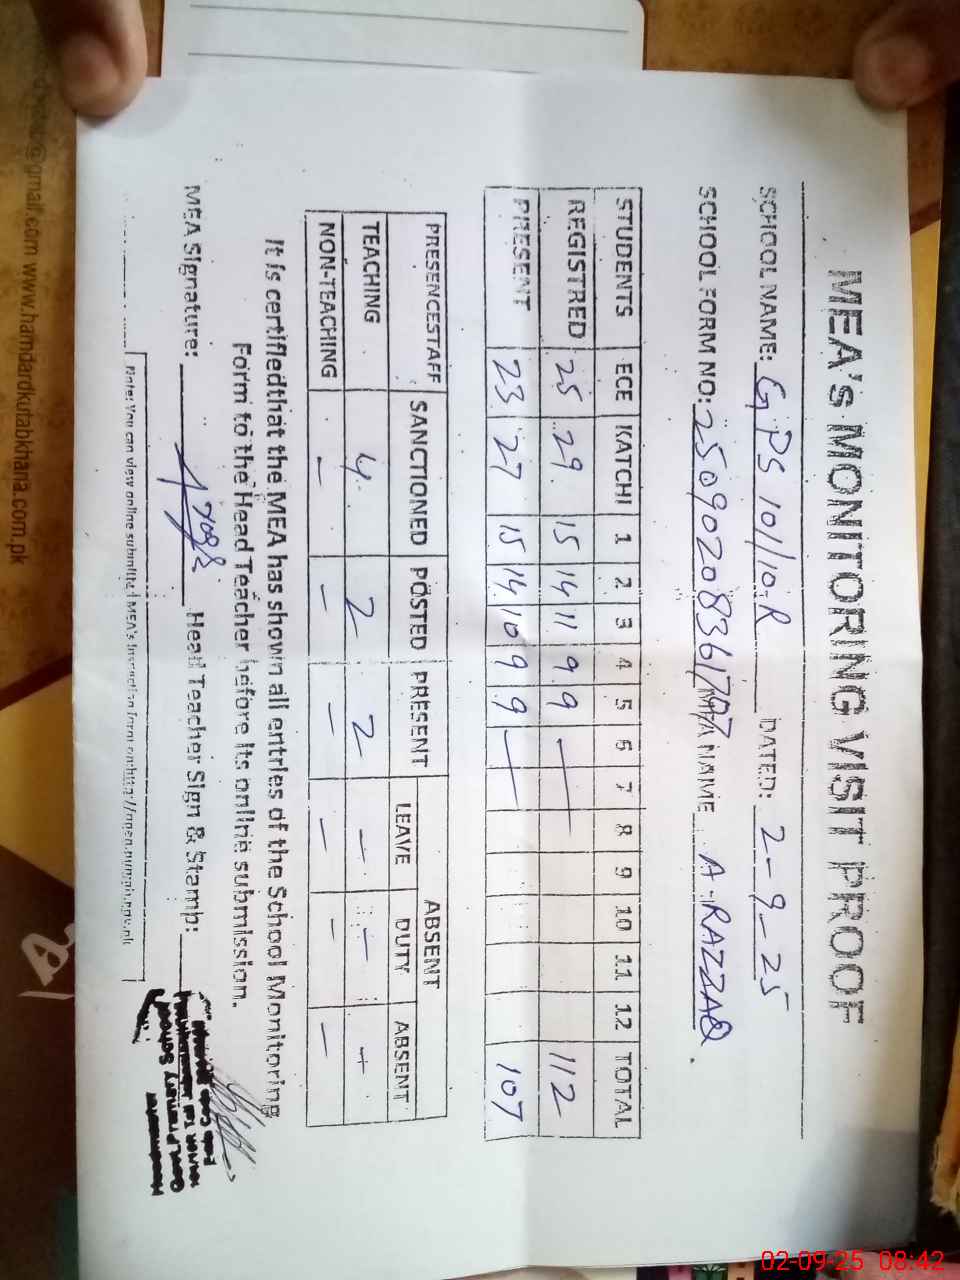 MEA's MONITORING VISIT PROOF
SCHOOL NAME: GPS 101/10-R DATED: 2-9-25
SCHOOL FORM NO: NAME A-RAZZAQ.
STUDENTS ECE KATCHI 1 2 3 4 5 6 7 8 9 10 11 12 TOTAL
REGISTRED 25 29 15 14 11 9 9 — 112
PRESENT 23 27 15 14 10 9 9 — 107
PRESENCESTAFF SANCTIONED POSTED PRESENT ABSENT
LEAVE DUTY ABSENT
TEACHING 4 2 2 — — —
NON-TEACHING — — — — — —
It is certifiedthat the MEA has shown all entries of the School Monitoring
Form to the Head Teacher before its online submission.
MEA Signature: Head Teacher Sign & Stamp:
Note: You can view online submitted MEA's Inspection form on
@gmail.com www.hamdardkutabkhana.com.pk
02-09-25 08:42